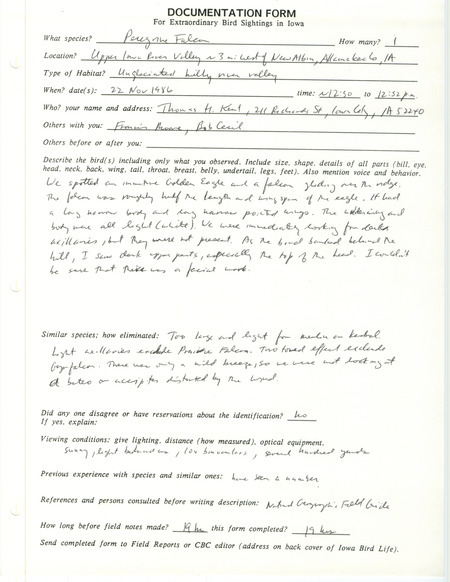 DOCUMENTATION FORM
For Extraordinary Bird Sightings in Iowa
What species? Peregrine Falcon How many? 1
Location? Upper Iowa River Valley ~3 mi west of New Albin, Allamakee Co, IA
Type of Habitat? Unglaciated hilly river valley
When? date(s): 22 Nov 1986 time: ~12:30 to 12:52 pm
Who? your name and address: Thomas H. Kent, 211 Richards St, Iowa City, IA 52240
Others with you: Francis Moore, Bob Cecil
Others before or after you:
Describe the bird(s) including only what you observed. Include size, shape, details of all parts (bill, eye,
head, neck, back, wing, tail, throat, breast, belly, undertail, legs, feet). Also mention voice and behavior.
We spotted an immature Golden Eagle and a falcon gliding over the ridge.
The falcon was roughly half the length and wingspan of the eagle. It had
a long narrow body and long narrow pointed wings. The underwing and
body were all light (white). We were immediately looking for dark
axillaries, but they were not present. As the bird banked behind the
hill, I saw dark upper parts, especially the top of the head. I couldn't
be sure that there was a facial mark.
Similar species; how eliminated: Too large and light for merlin or kestrel
Light axillaries exclude Prairie Falcon. Two toned effect excludes
Gyrfalcon. There was only a mild breeze, so we were not looking at
a buteo or accipiter distorted by the wind.
Did any one disagree or have reservations about the identification? No
If yes, explain:
Viewing conditions: give lighting, distance (how measured), optical equipment.
sunny, light behind us, 10x binoculars, several hundred yards
Previous experience with species and similar ones: have seen a number
References and persons consulted before writing description: National Geographic Field Guide
How long before field notes made? 19 hr this form completed? 19 hrs
Send completed form to Field Reports or CBC editor (address on back cover of Iowa Bird Life).